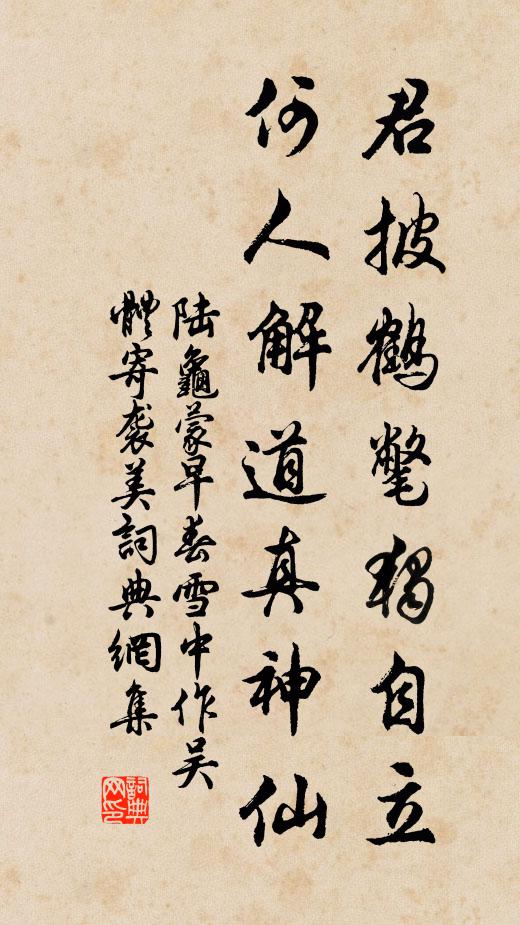 君披鶴氅獨自立
何人解道真神仙
陆龜蒙早春雪中作吴
體寄袭美詞典網集
詞典网印